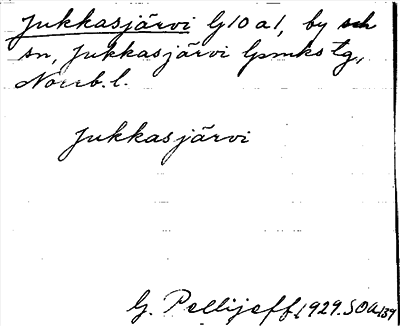 Jukkasjärvi G10a1, by sch
sn, Jukkasjärvi lpmks tg,
Norrb.l.
Jukkasjärvi
G. Pellijeff, 1929. SOA 159